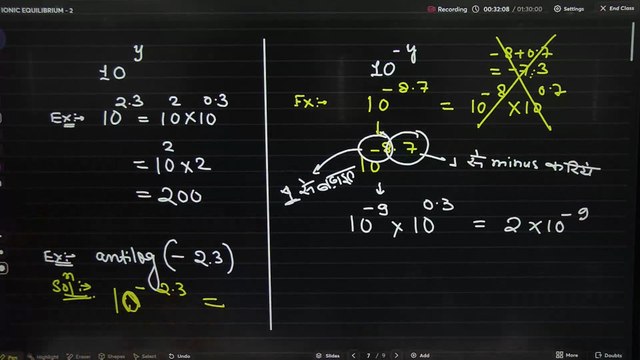 IONIC EQUILIBRIUM - 2
Recording
00:32:08 / 01:30:00
Settings
End Class
10^y
Ex:- 10^2.3 = 10^2 × 10^0.3
= 10^2 × 2
= 200
Ex:- antilog (- 2.3)
Sol^n:- 10^-2.3 =
10^-y
Ex:- 10^-8.7 = 10^-8 × 10^0.7
- 8 + 0.7
= -7.3
10^-8.7
1 से बढ़ाया
1 से minus करिये
10^-9 × 10^0.3 = 2 × 10^-9
Pen
Highlight
Eraser
Shapes
Stretch
Undo
Slides
7 / 9
Add
More
Doubts